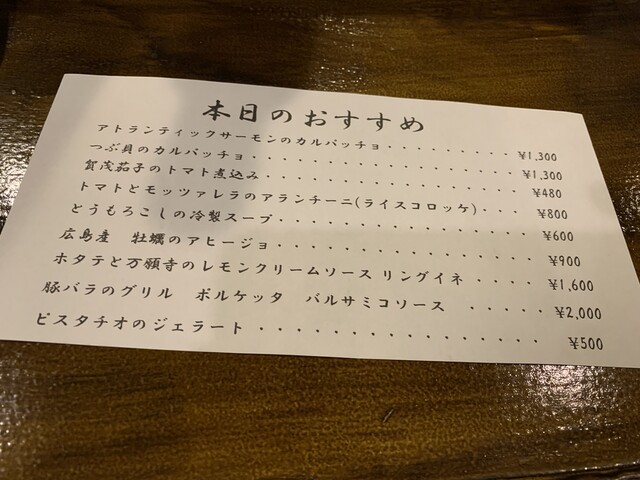 本日のおすすめ
アトランティックサーモンのカルパッチョ・・・・・・・・・¥1,300
つぶ貝のカルパッチョ・・・・・・・・・・・・・・・・・・¥1,300
賀茂茄子のトマト煮込み・・・・・・・・・・・・・・・・・¥480
トマトとモッツァレラのアランチーニ(ライスコロッケ)・・・¥800
とうもろこしの冷製スープ・・・・・・・・・・・・・・・・¥600
広島産　牡蠣のアヒージョ・・・・・・・・・・・・・・・・¥900
ホタテと万願寺のレモンクリームソース リングイネ ・・・・¥1,600
豚バラのグリル　ポルケッタ　バルサミコソース　・・・・・¥2,000
ピスタチオのジェラート ・・・・・・・・・・・・・・・・¥500